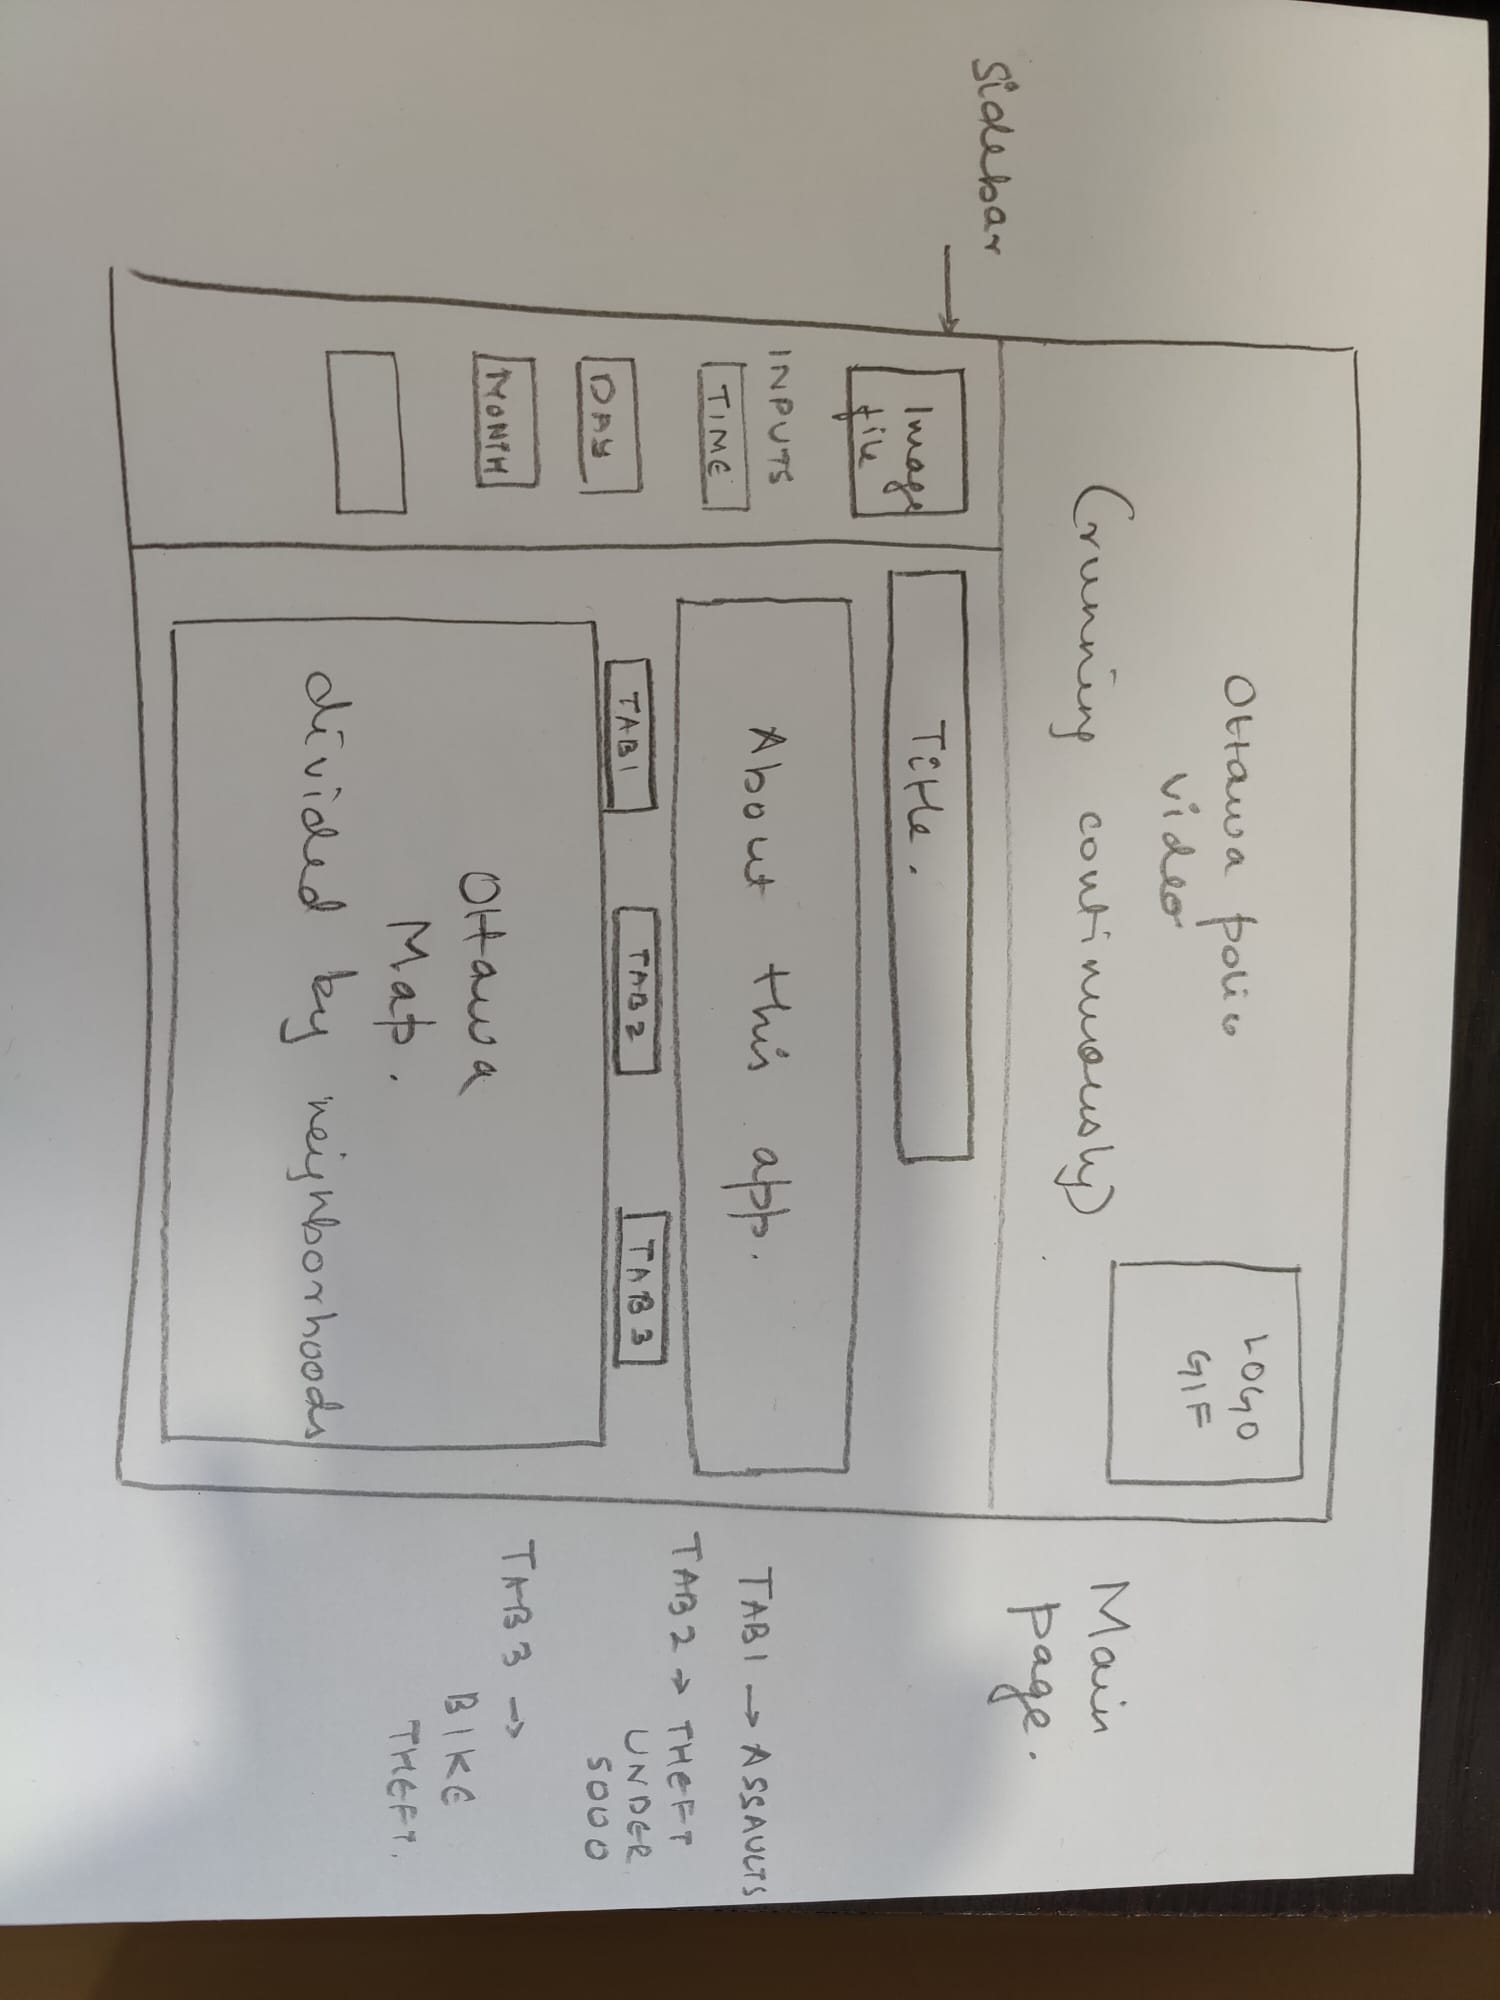 Sidebar
Ottawa police
video
(running continuously)
LOGO
GIF
Main
page.
Image
file
INPUTS
TIME
DAY
MONTH
Title.
About this app.
TAB1
TAB2
TAB3
Ottawa
Map.
divided by neighborhoods
TAB1 → ASSAULTS
TAB2 → THEFT
UNDER
5000
TAB3 →
BIKE
THEFT.